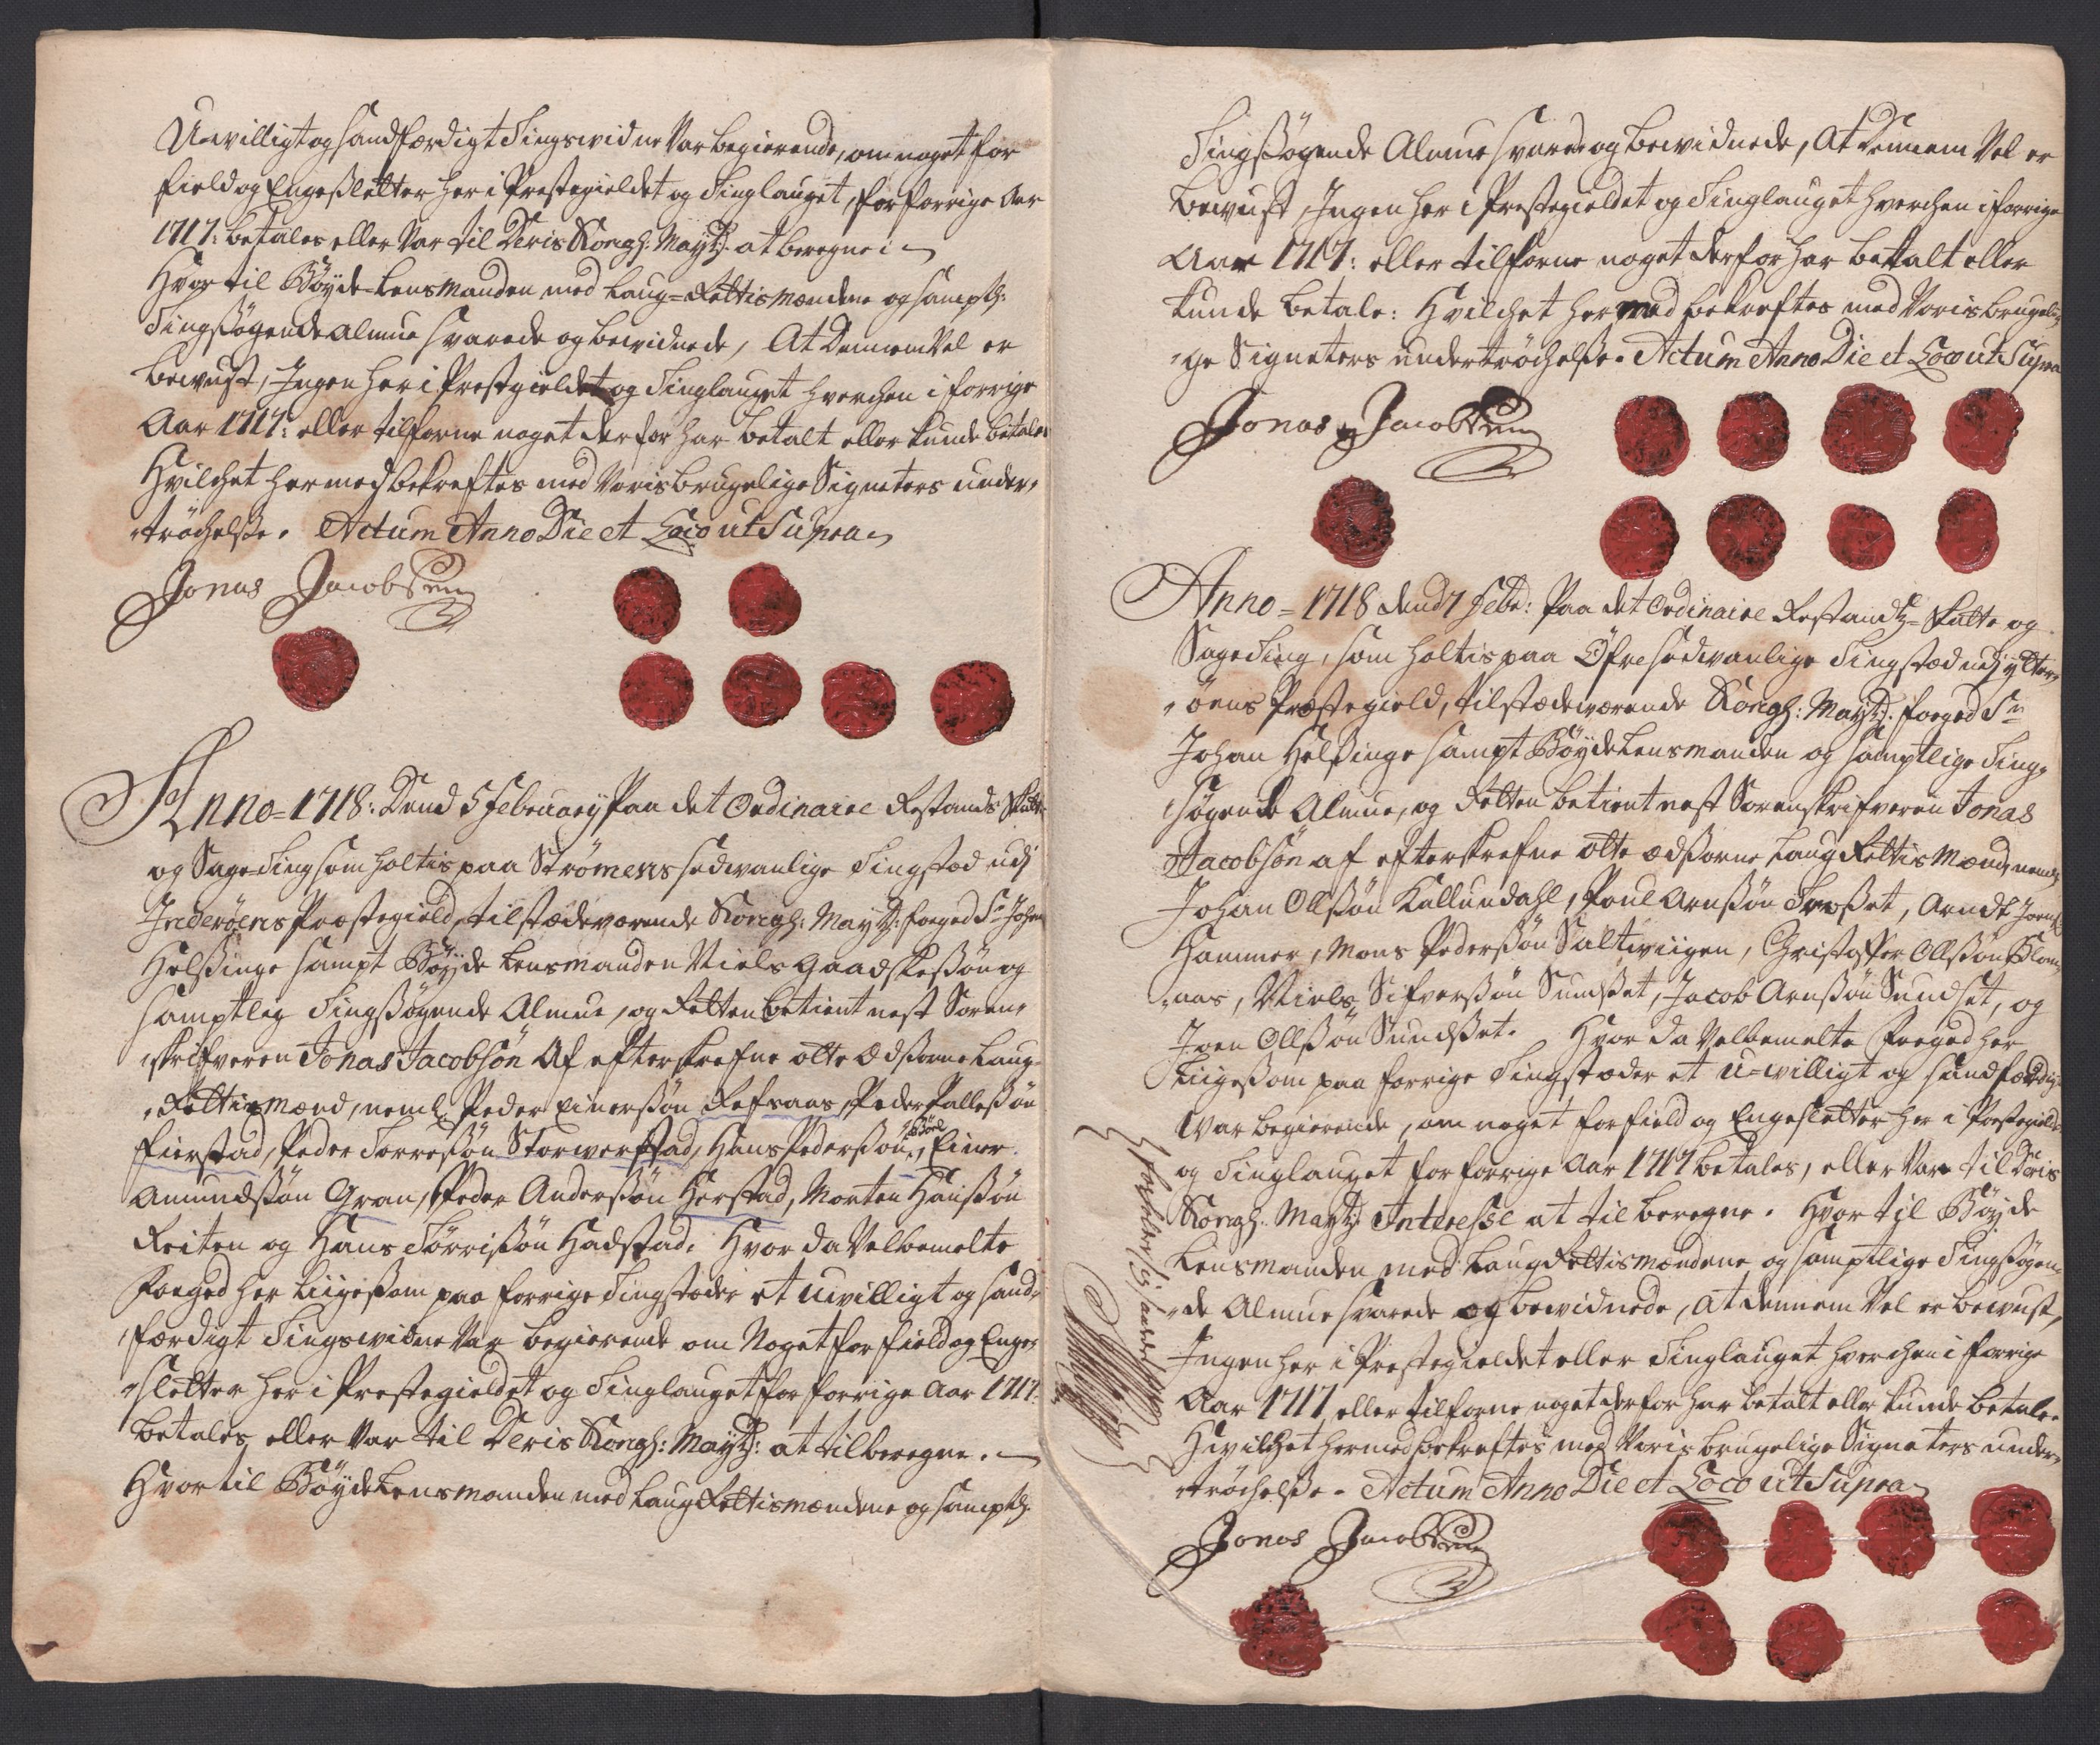 U-villigt og sandfærdigt Tingsvidne Var begierende, om noget for
field og Engesletter her i Prestegieldet og Tinglauget, for forrige Aar
1717: betales eller Var til Deris Kongh: Maytz. at beregne:
Hvor til Böyde-Lensmanden med Laug-Rettismændene og samptl:
Tingsøgende almue svarede og bevidnede, At Dennem Vel er
bevust, Ingen her i Prestegieldet og Tinglauget hverchen i forrige
Aar 1717: eller tilforne noget derfor har betalt eller kunde betale
Hvilchet hermed bekreftes med Voris brugelige Signeters under,
trøchelsse. Actum Anno Die et Loco ut Supra
Jonas Jacobsen
Anno=1718: Dend 5 February Paa det Ordinaire Restands Skatte
og Sage-Ting som holtis paa Strömens sedvanlige Tingstæd udj
Inderöens Præstegield, tilstædeværende Kongh: Maytz: foged Sr Johan
Helssinge sampt Böyde Lensmanden Niels Gaadskessøn og
samptlig Tingssøgende Almue, og Retten betient nest Soren,
skrifveren Jonas Jacobsön Af efterskrefne otte Ædsorne Laug-
Rettismænd, neml: Peder Einerssøn Refsaas, Peder Pallessøn
fierstad, Peder Torressøn Storwerstad, Hans Pederssøn Börl, Einer
Amundssøn Gran, Peder Anderssøn Herstad, Morten Hanssøn
Reiten og Hans Törrissøn Hadstad. Hvor da Velbemelte
Foged her liigesom paa forrige Tingstæder et uvilligt og sand,
færdigt Tingsvidne Var begierende om Noget for field og Enge,
sletter her i Prestegieldet og Tinglauget for forrige Aar 1717.
betales eller Var til Deris Kongh: Maytz: at tilberegne.
Hvor til Böyde Lensmanden med Laug Rettismændene og samptl.
Tingssøgende Almue svarede og bevidnede, At Dennem Vel er
bevust, Ingen her i Prestegieldet og Tinglauget hverchen i forrige
Aar 1717: eller tilforne noget derfor har betalt eller
kunde betale: Hvilchet hermed bekreftes med Voris brugeli,
ge Signeters undertrøchelsse. Actum Anno Die et Loco ut Supra
Jonas Jacobsen
Anno=1718 dend 7 Febr: Paa det Ordinaire Restandtz-Skatte og
Sage Ting, som holtis paa Öfre sedvanlige Tingstæd udj ytter,
öens Præstegield, tilstædeværende Kongh: Maytz: foged Sr
Johan Helssinge sampt Böyde Lensmanden og samptlige Ting,
søgende Almue, og Retten betient nest Sorenskrifveren Jonas
Jacobsön af efterskrefne otte ædsorne Laug Rettis Mænd, neml:
Johan Olssøn Kallundahl, Poul Arnssøn Trosset, Arndt Joens:
Hammer, Mons Pederssøn Saltwiigen, Christoffer Olssøn Blom,
naas, Niels Sifverssøn Sundset, Jacob Arnssøn Sundset, og
Joen Olssøn Sundsset. Hvor da Velbemelte Foged her
Liigesom paa forrige Tingstæder et u-villigt og sandfærdigt
Var begierende, om noget for field og Engesletter her i Prestegieldet
og Tinglauget for forrige Aar 1717 betales, eller Var til Deris
Kongh: Maytz: Interesse at tilberegne. Hvor til Böyde
Lensmanden med Laug Rettismændene og samptlige Tingsøgen,
de Almue svarede og bevidnede, at dennem Vel er bevust,
Ingen her i Prestegieldet eller Tinglauget hverchen i forrige
Aar 1717 eller tilforne noget derfor har betalt eller kunde betale.
Hvilchet hermed bekreftes med Voris brugelige Signeters under,
trøchelsse. Actum Anno Die et Loco ut Supra
Jonas Jacobsen